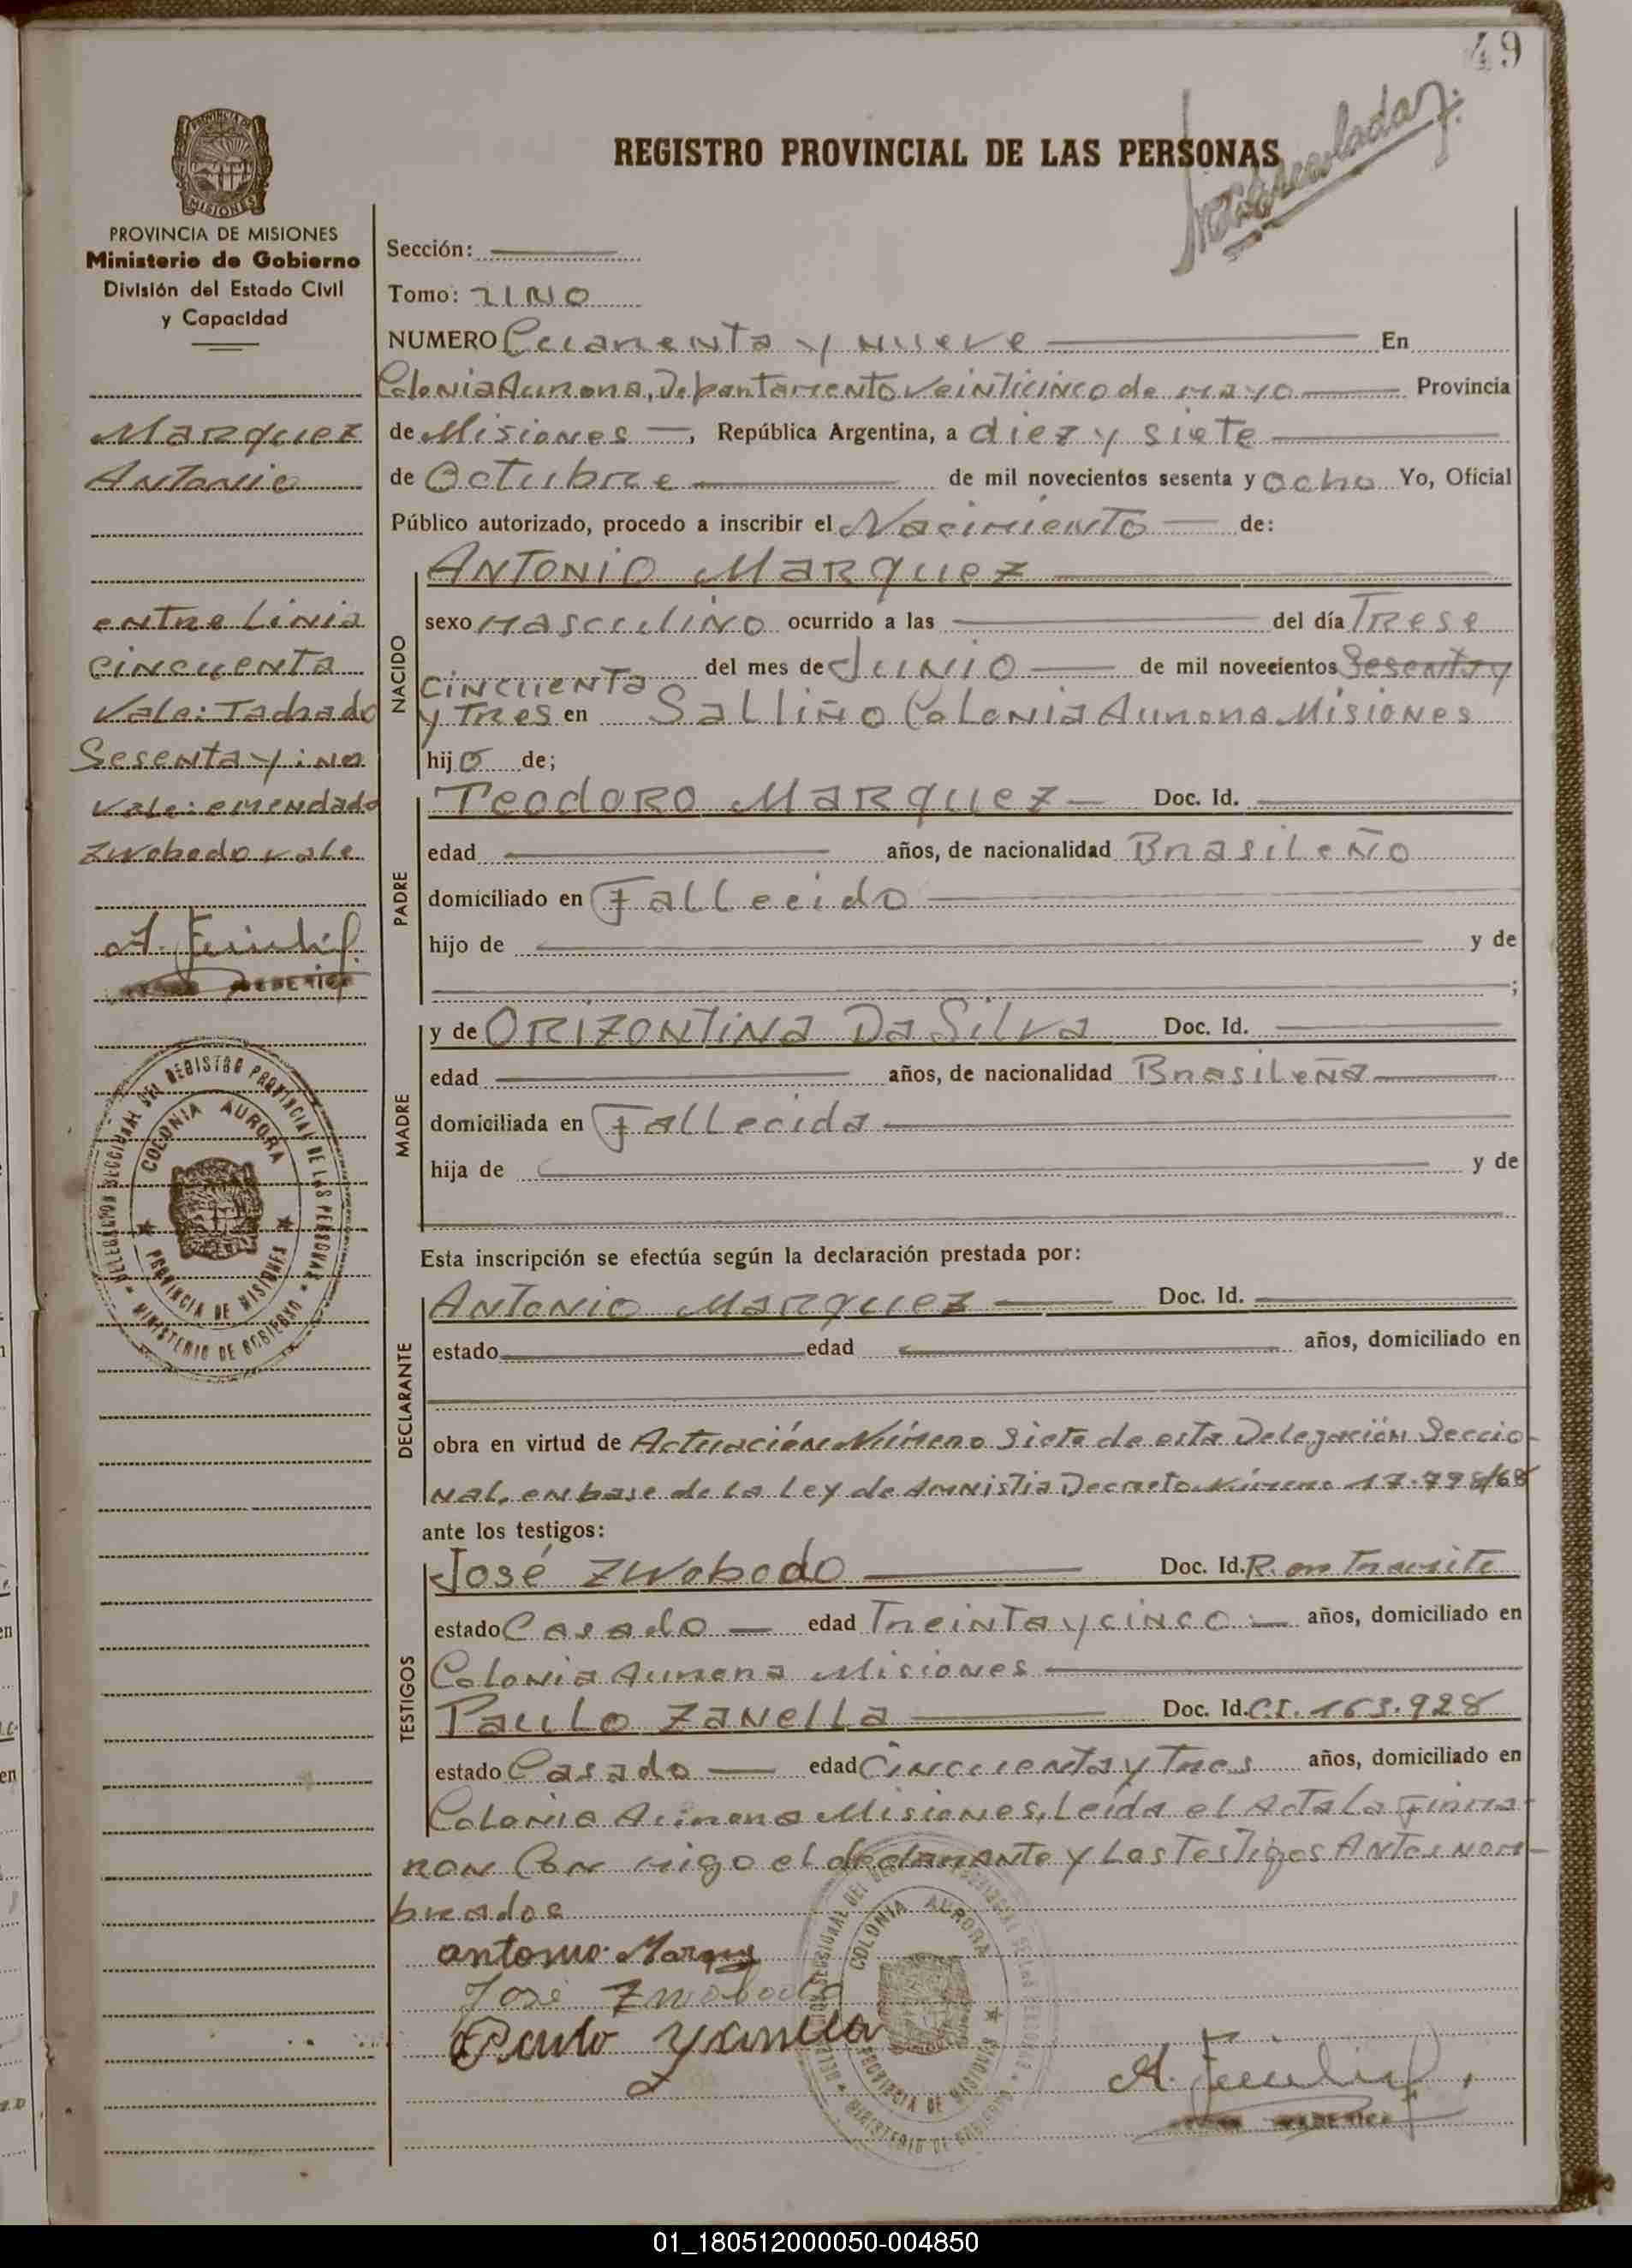 49
REGISTRO PROVINCIAL DE LAS PERSONAS
MISIONES
PROVINCIA DE MISIONES
Ministerio de Gobierno
División del Estado Civil
y Capacidad
Marquez
Antonio
entre Linia
cincuenta
Vale: Tachado
Sesenta y uno
Vale: emendado
Zwobodo vale
DELEGACION SECCIONAL DEL REGISTRO PROVINCIAL DE LAS PERSONAS
COLONIA AURORA
PROVINCIA DE MISIONES
MINISTERIO DE GOBIERNO
Sección:
Tomo: UNO
NUMERO Cuarenta y nueve En
Colonia Aurora, Departamento Veinticinco de mayo Provincia
de Misiones, República Argentina, a diez y siete
de Octubre de mil novecientos sesenta y ocho Yo, Oficial
Público autorizado, procedo a inscribir el Nacimiento de:
NACIDO
ANTONIO MARQUEZ
sexo Masculino ocurrido a las del día Trese
del mes de Junio de mil novecientos Sesenta y
cincuenta
y Tres en Salliño Colonia Aurora Misiones
hijo de;
PADRE
Teodoro MARQUEZ Doc. Id.
edad años, de nacionalidad Brasileño
domiciliado en Fallecido
hijo de y de
;
MADRE
y de ORIZONTINA Da Silva Doc. Id.
edad años, de nacionalidad Brasileña
domiciliada en Fallecida
hija de y de
Esta inscripción se efectúa según la declaración prestada por:
DECLARANTE
ANTONIO MARQUEZ Doc. Id.
estado edad años, domiciliado en
obra en virtud de Actuación Número Siete de esta Delegación Seccio-
nal, en base de la Ley de Amnistia Decreto Número 17.798/68
ante los testigos:
TESTIGOS
José Zwobodo Doc. Id. R. en Tramite
estado Casado edad Treinta y cinco años, domiciliado en
Colonia Aurora Misiones
Paulo Zanella Doc. Id. C.I. 163.928
estado Casado edad Cincuenta y Tres años, domiciliado en
Colonia Aurora Misiones, Leida el Acta La Firma-
ron Con migo el declarante y Los Testigos Antes nom-
brados
antonio Marquez
José Zwobodo
Paulo Zanella
COLONIA AURORA
PROVINCIA DE MISIONES
MINISTERIO DE GOBIERNO
01_180512000050-004850